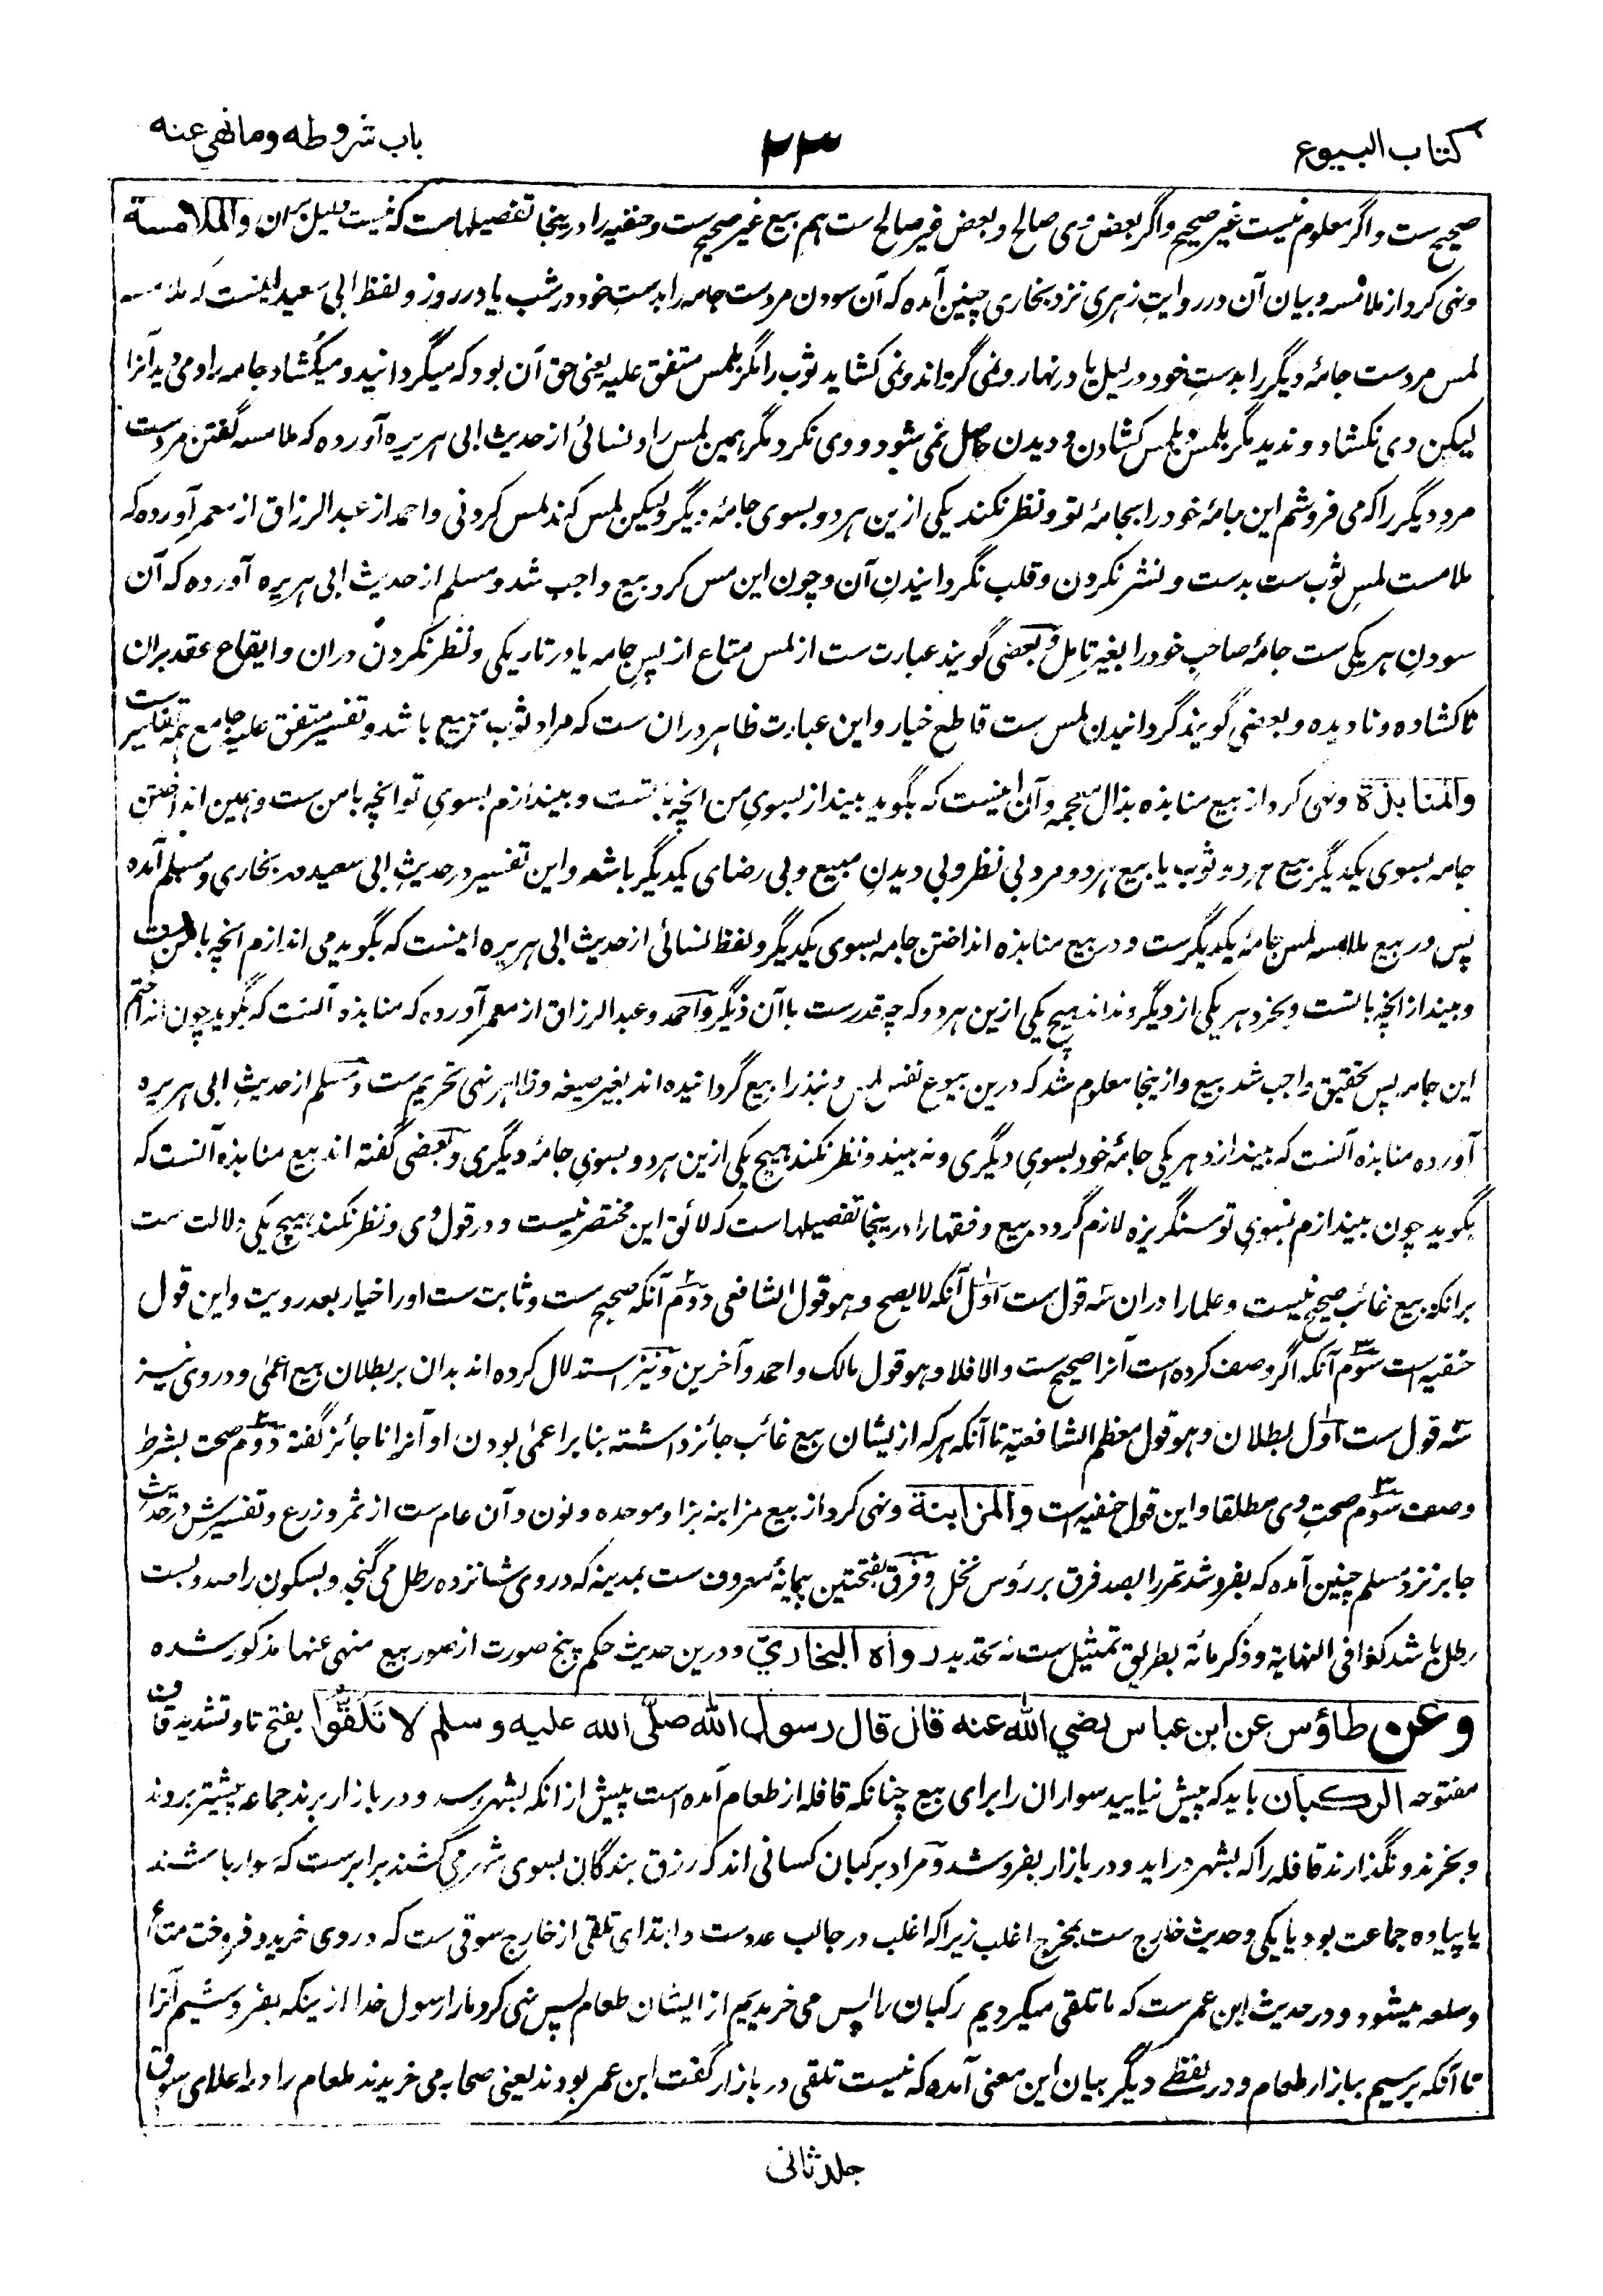 کتاب البیوع
۲۳
باب شروطه وما نهي عنه
صحیح ست واگر معلوم نیست غیر صحیح واگر بعض وی صالح و بعض غیر صالح ست هم بیع غیر صحیح ست و حنفیه را درینجا تفصیلهاست که نیست دلیل بران والملامسة
ونهی کرد از ملامسه و بیان آن در روایت زهری نزد بخاری چنین آمده که آن سودن مردست جامه را بدست خود در شب یا در روز و لفظ ابی سعید اینست که ملامسه
لمس مردست جامهٔ دیگر را بدست خود در لیل یا در نهار و نمی گرداند و نمی کشاید ثوب را مگر بلمس متفق علیه یعنی حق آن بود که میگردانید و میکشاد جامه را و می دید آنرا
لیکن وی نکشاد و ندید مگر بلمس و بلمس کشادن و دیدن حاصل نمی شود و وی نکرد مگر همین لمس را و نسائی از حدیث ابی هریره آورده که ملامسه گفتن مردست
مرد دیگر را که می فروشم این جامهٔ خود را بجامهٔ تو و نظر نکند یکی ازین هر دو بسوی جامهٔ دیگر ولیکن لمس کند لمس کردنی واحمد از عبدالرزاق از معمر آورده که
ملامست لمس ثوب ست بدست و نشر نکردن و قلب نگردانیدن آن و چون این مس کرد بیع واجب شد و مسلم از حدیث ابی هریره آورده که آن
سودن هر یکی ست جامهٔ صاحب خود را بغیر تامل و بعضی گویند عبارت ست از لمس متاع از پس جامه یا در تاریکی و نظر نکردن دران و ایقاع عقد بران
ناکشاده و نادیده و بعضی گویند گردانیدن لمس ست قاطع خیار و این عبارت ظاهر دران ست که مراد ثوب مبیع باشد و تفسیر متفق علیه جامع همه تفاسیر ست
والمنابذة ونهی کرد از بیع منابذه بذال معجمه و آن اینست که بگوید بینداز بسوی من انچه با تست و بیندازم بسوی تو انچه با من ست و همین انداختن
جامه بسوی یکدیگر بیع هر دو ثوب یا بیع هر دو مرد بی نظر و بی دیدن مبیع و بی رضای یکدیگر باشد و این تفسیر در حدیث ابی سعید در بخاری و مسلم آمده
پس در بیع ملامسه لمس جامهٔ یکدیگرست و در بیع منابذه انداختن جامه بسوی یکدیگر و لفظ نسائی از حدیث ابی هریره اینست که بگوید می اندازم انچه با من ست
و بینداز انچه با تست و بخرد هر یکی از دیگر و نداند هیچ یکی ازین هر دو که چه قدرست با آن دیگر واحمد و عبدالرزاق از معمر آورده که منابذه آنست که بگوید چون انداختم
این جامه پس تحقیق واجب شد بیع و ازینجا معلوم شد که درین بیوع نفس لمس و نبذ را بیع گردانیده اند بغیر صیغه و ظاهر نهی تحریم ست و مسلم از حدیث ابی هریره
آورده منابذه آنست که بیندازد هر یکی جامهٔ خود بسوی دیگری و نه بیند و نظر نکند هیچ یکی ازین هر دو بسوی جامهٔ دیگری و بعضی گفته اند بیع منابذه آنست که
بگوید چون بیندازم بسوی تو سنگریزه لازم گردد بیع و فقها را درینجا تفصیلهاست که لائق این مختصر نیست و در قول وی و نظر نکند هیچ یکی دلالت ست
برانکه بیع غائب صحیح نیست و علما را دران سه قول ست اول آنکه لا یصح و هو قول الشافعی دوم آنکه صحیح ست و ثابت ست او را خیار بعد رویت و این قول
حنفیه است سوم آنکه اگر وصف کرده است آنرا صحیح ست والا فلا و هو قول مالک و احمد و آخرین و نیز استدلال کرده اند بدان بر بطلان بیع اعمی و دروی نیز
سه قول ست اول بطلان و هو قول معظم الشافعیه تا آنکه هر که ازیشان بیع غائب جائز داشته بنا بر اعمی بودن او آنرا ناجائز گفته دوم صحت بشرط
وصف سوم صحت وی مطلقا و این قول حنفیه است والمزابنة ونهی کرد از بیع مزابنه بزا و موحده و نون و آن عام ست از ثمر و زرع و تفسیرش در حدیث
جابر نزد مسلم چنین آمده که بفروشد تمر را بصد فرق بر رؤس نخل و فرق بفتحتین پیمانهٔ معروف ست بمدینه که دروی شانزده رطل می گنجد و بسکون را صد و بست
رطل باشد کذا فی النهایة و ذکر مائة بطریق تمثیل ست نه تحدید رواه البخاريّ و درین حدیث حکم پنج صورت از صور بیع منهی عنها مذکور شده
وعن طاؤس عن ابن عباس رضي الله عنه قال قال رسول الله صلّى الله عليه وسلم لا تَلَقَّوا بفتح تا و تشدید قاف
مفتوحه الركبان باید که پیش نیایید سواران را برای بیع چنانکه قافله از طعام آمده است پیش از انکه بشهر رسد و در بازار برند جماعه پیشتر بروند
و بخرند و نگذارند قافله را که بشهر دراید و در بازار بفروشد و مراد برکبان کسانی اند که رزق بندگان بسوی شهر می کشند برابرست که سوار باشند
یا پیاده جماعت بود یا یکی و حدیث خارج ست بمخرج اغلب زیرا که اغلب در جالب عددست و ابتدای تلقی از خارج سوقی ست که دروی خرید و فروخت متاع
و سلعه میشود و در حدیث ابن عمرست که ما تلقی میکردیم رکبان را پس می خریدیم ازایشان طعام پس نهی کرد ما را رسول خدا ازینکه بفروشیم آنرا
تا آنکه برسیم ببازار طعام و در لفظے دیگر بیان این معنی آمده که نیست تلقی در بازار گفت ابن عمر بودند یعنی صحابه می خریدند طعام را در اعلای سوق
جلد ثانی